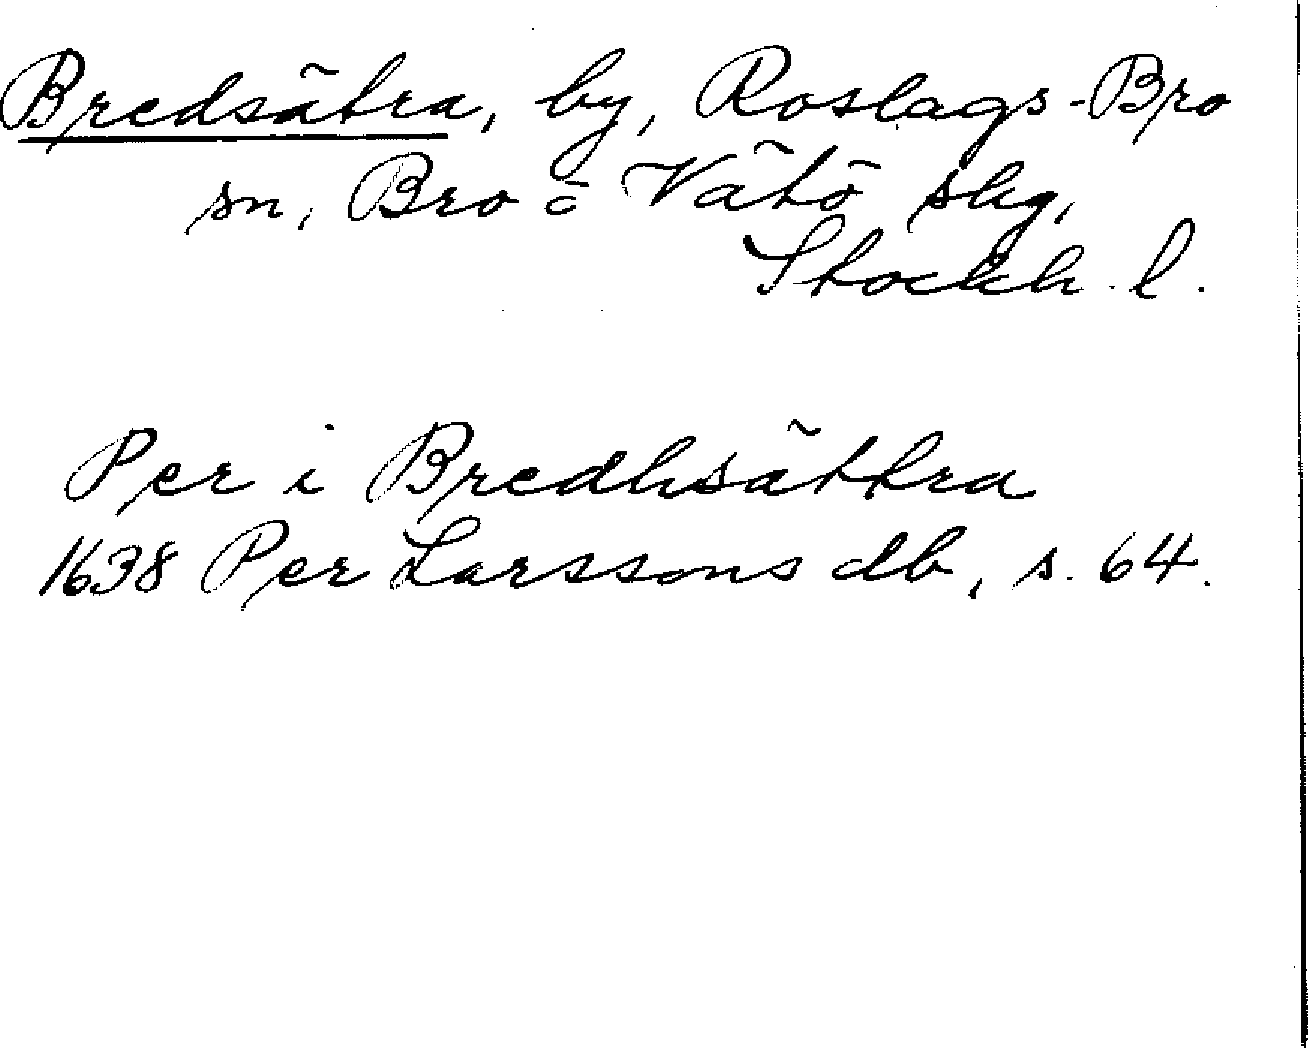 Bredsätra, by, Roslags-Bro
sn, Bro o Vätö skg,
Stockh. l.
Per i Bredhsättra
1638 Per Larssons db, s. 64.